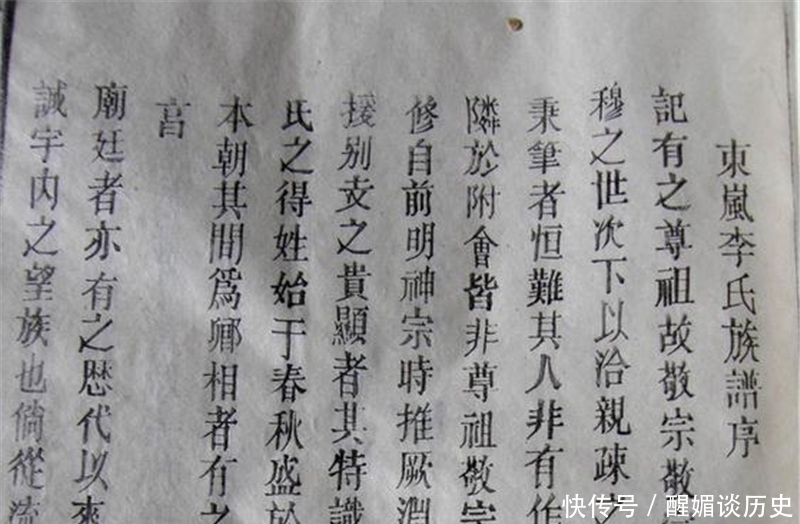 東嵐李氏族譜序
記有之尊祖故敬宗敬
穆之世次下以洽親疎之
秉筆者恒難其人非有作
隣於附會皆非尊祖敬宗
修自前明神宗時推厥淵
援别支之貴顯者其特識
氏之得姓始于春秋盛於
本朝其間爲卿相者有之
言
廟廷者亦有之歷代以來
誠宇内之望族也倘從流
快传号/醒媚谈历史